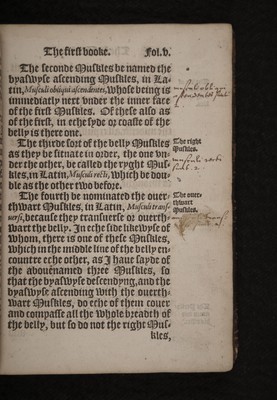 The first booke. Fol.v.
The seconde Muskles be named the
byaswyse ascending Muskles, in La-
tin, Musculi obliqui ascendentes, whose being is
immediatly next vnder the inner face
of the first Muskles. Of these also as
of the first, in eche syde or coaste of the
belly is there one.
The thirde sort of the belly Muskles
as they be situate in order, the one vn-
der the other, be called the ryght Mus-
kles, in Latin, Musculi recti, which be dou-
ble as the other two before.
The fourth be nominated the ouer-
thwart Muskles, in Latin, Musculi transf-
uersi, because they transuerse or ouerth-
wart the belly. In eche side likewyse of
whom, there is one of these Muskles,
which in the middle line of the belly en-
countre eche other, as I haue sayde of
the abouenamed three Muskles, so
that the byaswyse descendyng, and the
byaswyse ascending with the ouerth-
wart Muskles, do eche of them couer
and compasse all the whole breadth of
the belly, but so do not the right Mus-
kles,
The right
Muskles.
musculi recti
The ouer-
thwart
Muskles.